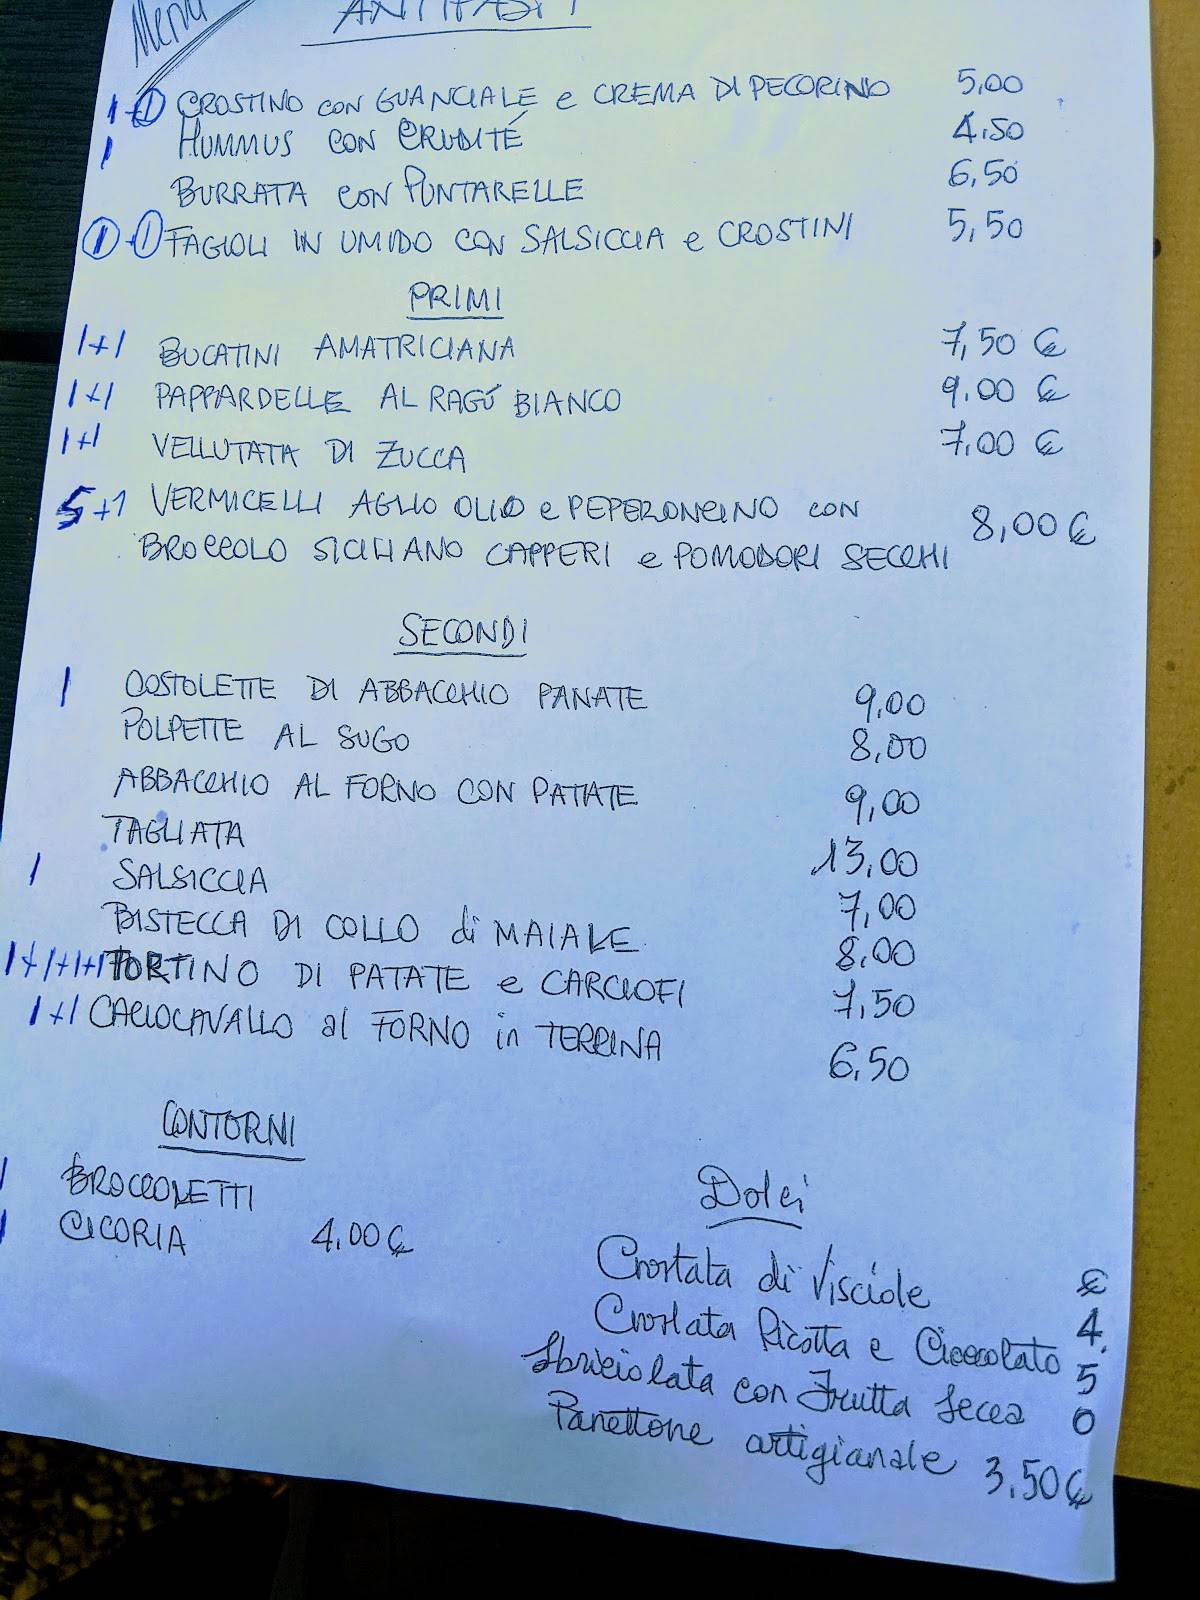 Menu
ANTIPASTI
1+1 CROSTINO CON GUANCIALE e CREMA DI PECORINO 5,00
1 HUMMUS CON CRUDITÉ 4.50
BURRATA CON PUNTARELLE 6,50
1-1 FAGIOLI IN UMIDO CON SALSICCIA e CROSTINI 5,50
PRIMI
1+1 BUCATINI AMATRICIANA 7,50 €
1+1 PAPPARDELLE AL RAGÚ BIANCO 9,00 €
1+1 VELLUTATA DI ZUCCA 7,00 €
5+1 VERMICELLI AGLIO OLIO e PEPERONCINO CON
BROCCOLO SICILIANO CAPPERI e POMODORI SECCHI 8,00 €
SECONDI
1 COSTOLETTE DI ABBACCHIO PANATE 9,00
POLPETTE AL SUGO 8,00
ABBACCHIO AL FORNO CON PATATE 9,00
TAGLIATA 13,00
1 SALSICCIA 7,00
BISTECCA DI COLLO di MAIALE 8,00
1+1+1+1 TORTINO DI PATATE e CARCIOFI 7,50
1+1 CACIOCAVALLO al FORNO in TERRINA 6,50
CONTORNI
1 BROCCOLETTI
1 CICORIA 4,00 €
Dolci
Crostata di Visciole
Crostata Ricotta e Cioccolato
Sbriciolata con Frutta secca
€ 4.50
Panettone artigianale 3.50 €